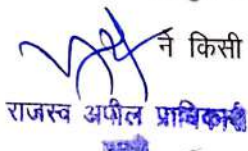 ने किसी
राजस्व अपील प्राधिकारी